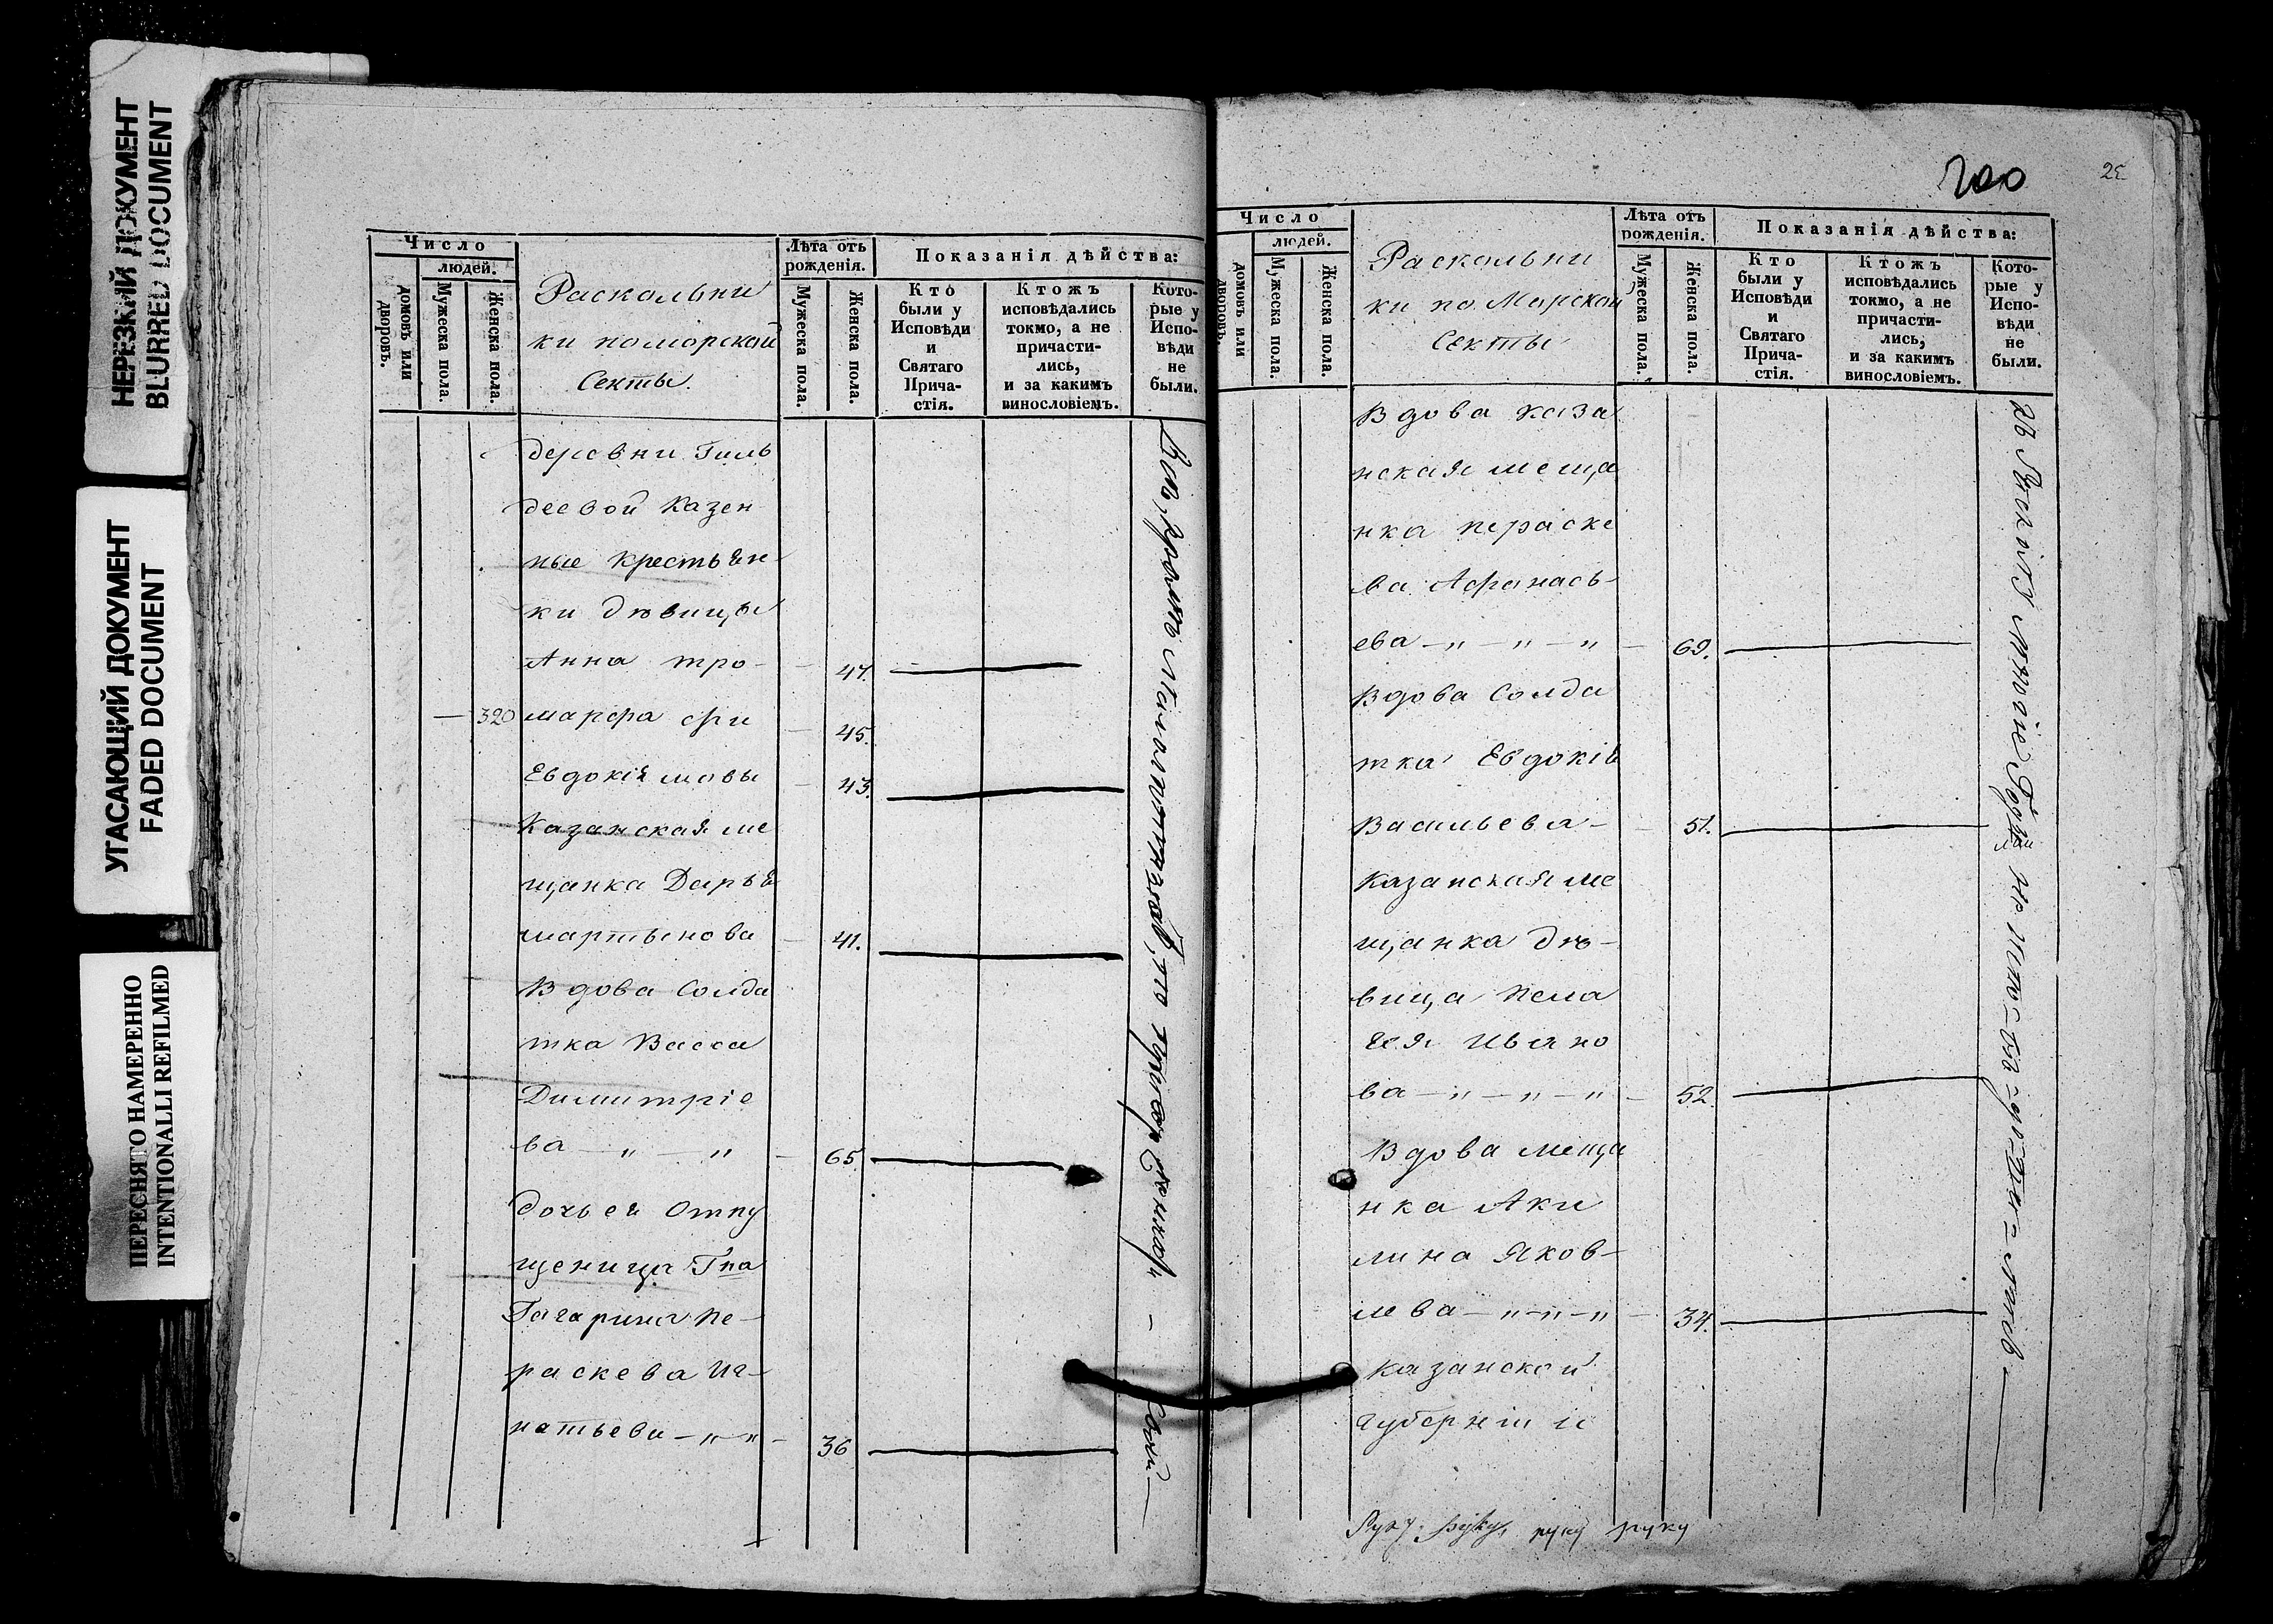 НЕРЕЗКИЙ ДОКУМЕНТ
BLURRED DOCUMENT
УГАСАЮЩИЙ ДОКУМЕНТ
FADED DOCUMENT
ПЕРЕСНЯТО НАМЕРЕННО
INTENTIONALLI REFILMED
Число
людей.
домовъ или дворовъ.
Мужеска пола.
Женска пола.
Раскольни
ки поморской
Секты.
Лѣта отъ
рожденія.
Мужеска пола.
Женска пола.
Показанія дѣйства:
Кто
были у
Исповѣди
и
Святаго
Прича-
стія.
Ктожъ
исповѣдались
токмо, а не
причасти-
лись,
и за какимъ
винословіемъ.
Кото-
рые у
Испо-
вѣди
не
были.
деревни Гиль
деевой Казен
ные крестьян-
ки дѣвицы
Анна тро- 47.
320 марфа ефи 45.
Евдокія мовы 43.
Казанская ме
щанка Дарья
мартынова 41.
Вдова Солда
тка Васса
Димитріе
ва — „ — „ — 65.
дочь ея отпу
щеница Гна
Гагарина Пе-
раскева Иг-
натьева — „ — „ — 36
200
Число
людей.
домовъ или дворовъ.
Мужеска пола.
Женска пола.
Раскольни
ки по Морской
Секты
Лѣта отъ
рожденія.
Мужеска пола.
Женска пола.
Показанія дѣйства:
Кто
были у
Исповѣди
и
Святаго
Прича-
стія.
Ктожъ
исповѣдались
токмо, а не
причасти-
лись,
и за какимъ
винословіемъ.
Кото-
рые у
Испо-
вѣди
не
были.
Вдова каза
нская меща
нка пераске
ва Афанась-
ева — „ — „ — „ — 69.
Вдова Солда
тка Евдокія
Васильева — 51.
Казанская ме
щанка дѣ-
вица Пела
гея Ивано
ва — „ — „ — „ — 52.
Вдова меща
нка Аки
лина Яков-
лева — „ — „ — „ — 34.
Казанской
губерніи
руку руку